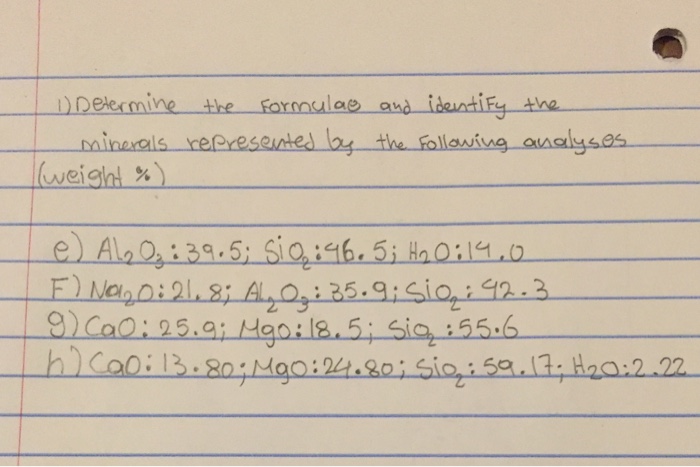 1) Determine the formulae and identify the
minerals represented by the following analyses
(weight %)
e) Al₂O₃: 39.5; SiO₂: 46.5; H₂O: 14.0
F) Na₂O: 21.8; Al₂O₃: 35.9; SiO₂: 42.3
g) CaO: 25.9; MgO: 18.5; SiO₂: 55.6
h) CaO: 13.80; MgO: 24.80; SiO₂: 59.17; H₂O: 2.22